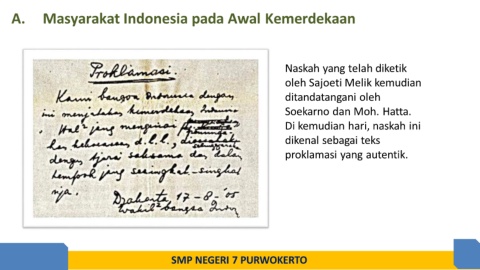 A. Masyarakat Indonesia pada Awal Kemerdekaan
Proklamasi.
Kami bangsa Indonesia dengan
ini menjatakan kemerdekaan Indone
Hal² jang mengenai
kekoeasaan d.l.l.,
dengan tjara saksama dan dalam
tempoh jang sesingkat-singkat
nja.
Djakarta 17-8-'05
Wakil² bangsa Indon
Naskah yang telah diketik
oleh Sajoeti Melik kemudian
ditandatangani oleh
Soekarno dan Moh. Hatta.
Di kemudian hari, naskah ini
dikenal sebagai teks
proklamasi yang autentik.
SMP NEGERI 7 PURWOKERTO